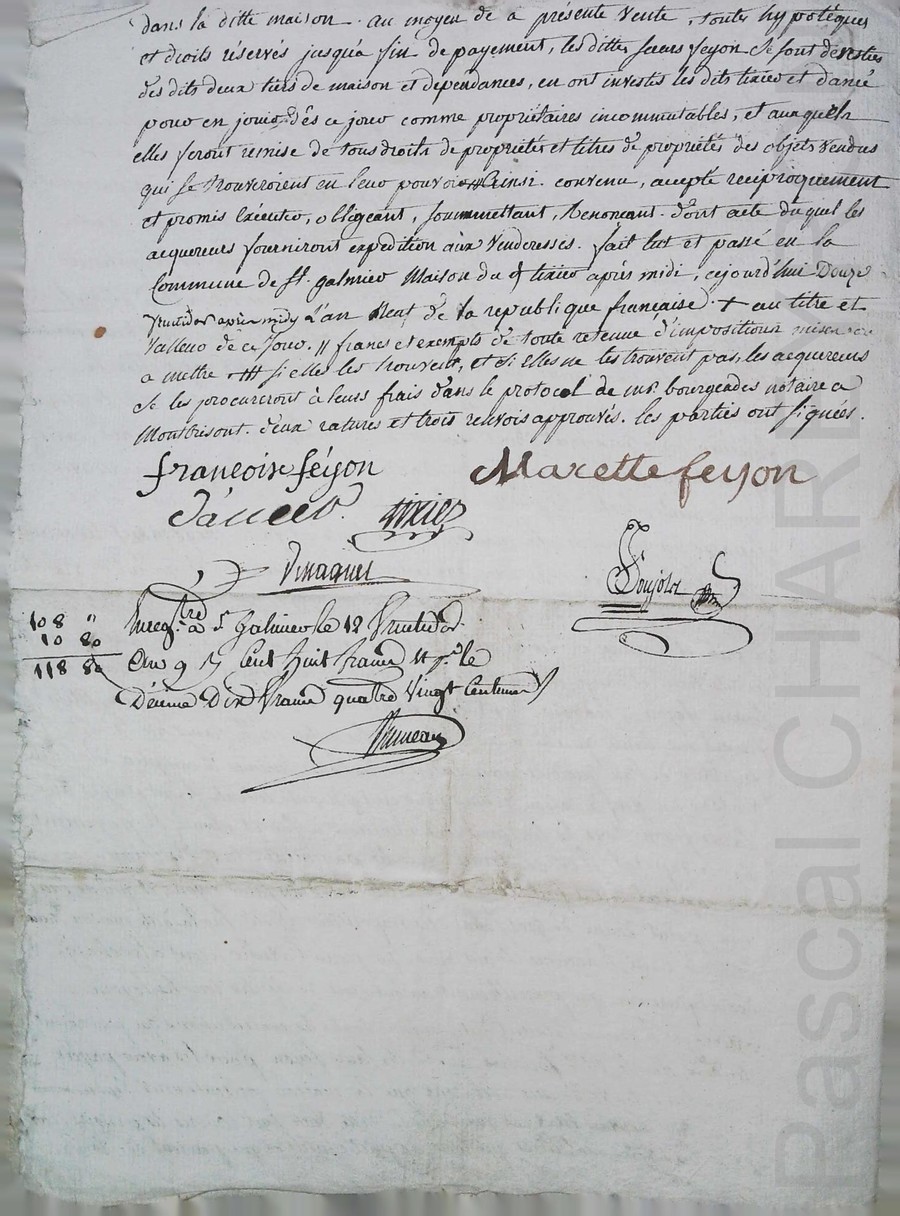 dans la ditte maison. au moyen de a présente vente, toutes hypotèques
et droits réservés jusqu'à fin de payement, les dittes sœurs feyon se sont devesties
des dits deux tiers de maison et dependances, en ont investis les dits tixier et
pour en jouir dès ce jour comme propriétaires incommutables, et auxquels
elles feront remise de tous droits de propriétés et titres de propriétés des objets vendus
qui se trouveroient en leur pouvoir ainsi convenu, accepté reciproquement
et promis exécuter, obligeant, soummettant, Renonçant. dont acte duquel les
acquereurs fourniront expédition aux venderesses. fait lut et passé en la
Commune de St. galmier Maison du tixier après midi, cejourd'hui Douze
fructidor après midy L'an Neuf de la republique française. + au titre et
valleur de ce jour. // francs et exempts de toute retenue d'impositions mises ou
a mettre # si elles les trouvent, et si elles ne les trouvent pas, les acquereurs
se les procureront à leurs frais dans le protocol de mr. bourgeades notaire a
Montbrison. deux ratures et trois renvois approuvés. les parties ont signées.
françoise féyon Marette feyon
tixier
108 "
10 80
118 80
Enreg.tré a St Galmier le 12 fructidor
an 9 Cent huit francs le
Décime Dix francs quatre vingt Centimes
Pascal CHARM